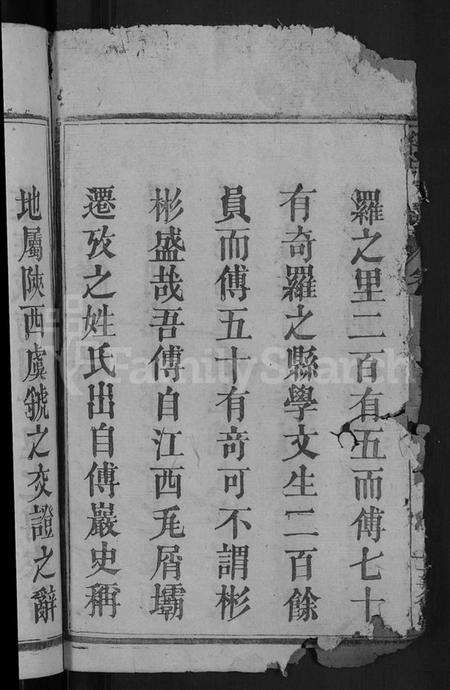 羅之里二百有五而傅七十
有奇羅之縣學文生二百餘
員而傅五十有奇可不謂彬
彬盛哉吾傅自江西瓦屑壩
遷攷之姓氏出自傅巖史稱
地屬陝西虞虢之交證之辭
FamilySearch